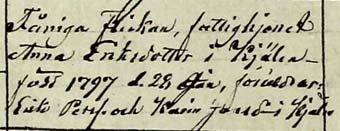 Fåniga Flickan, fattighjonet
Anna Ersdotter i Hjälm-
född 1797 d. 28 Jan, föräldrar:
Erik Perss. och Karin Jansd. i Hjälm